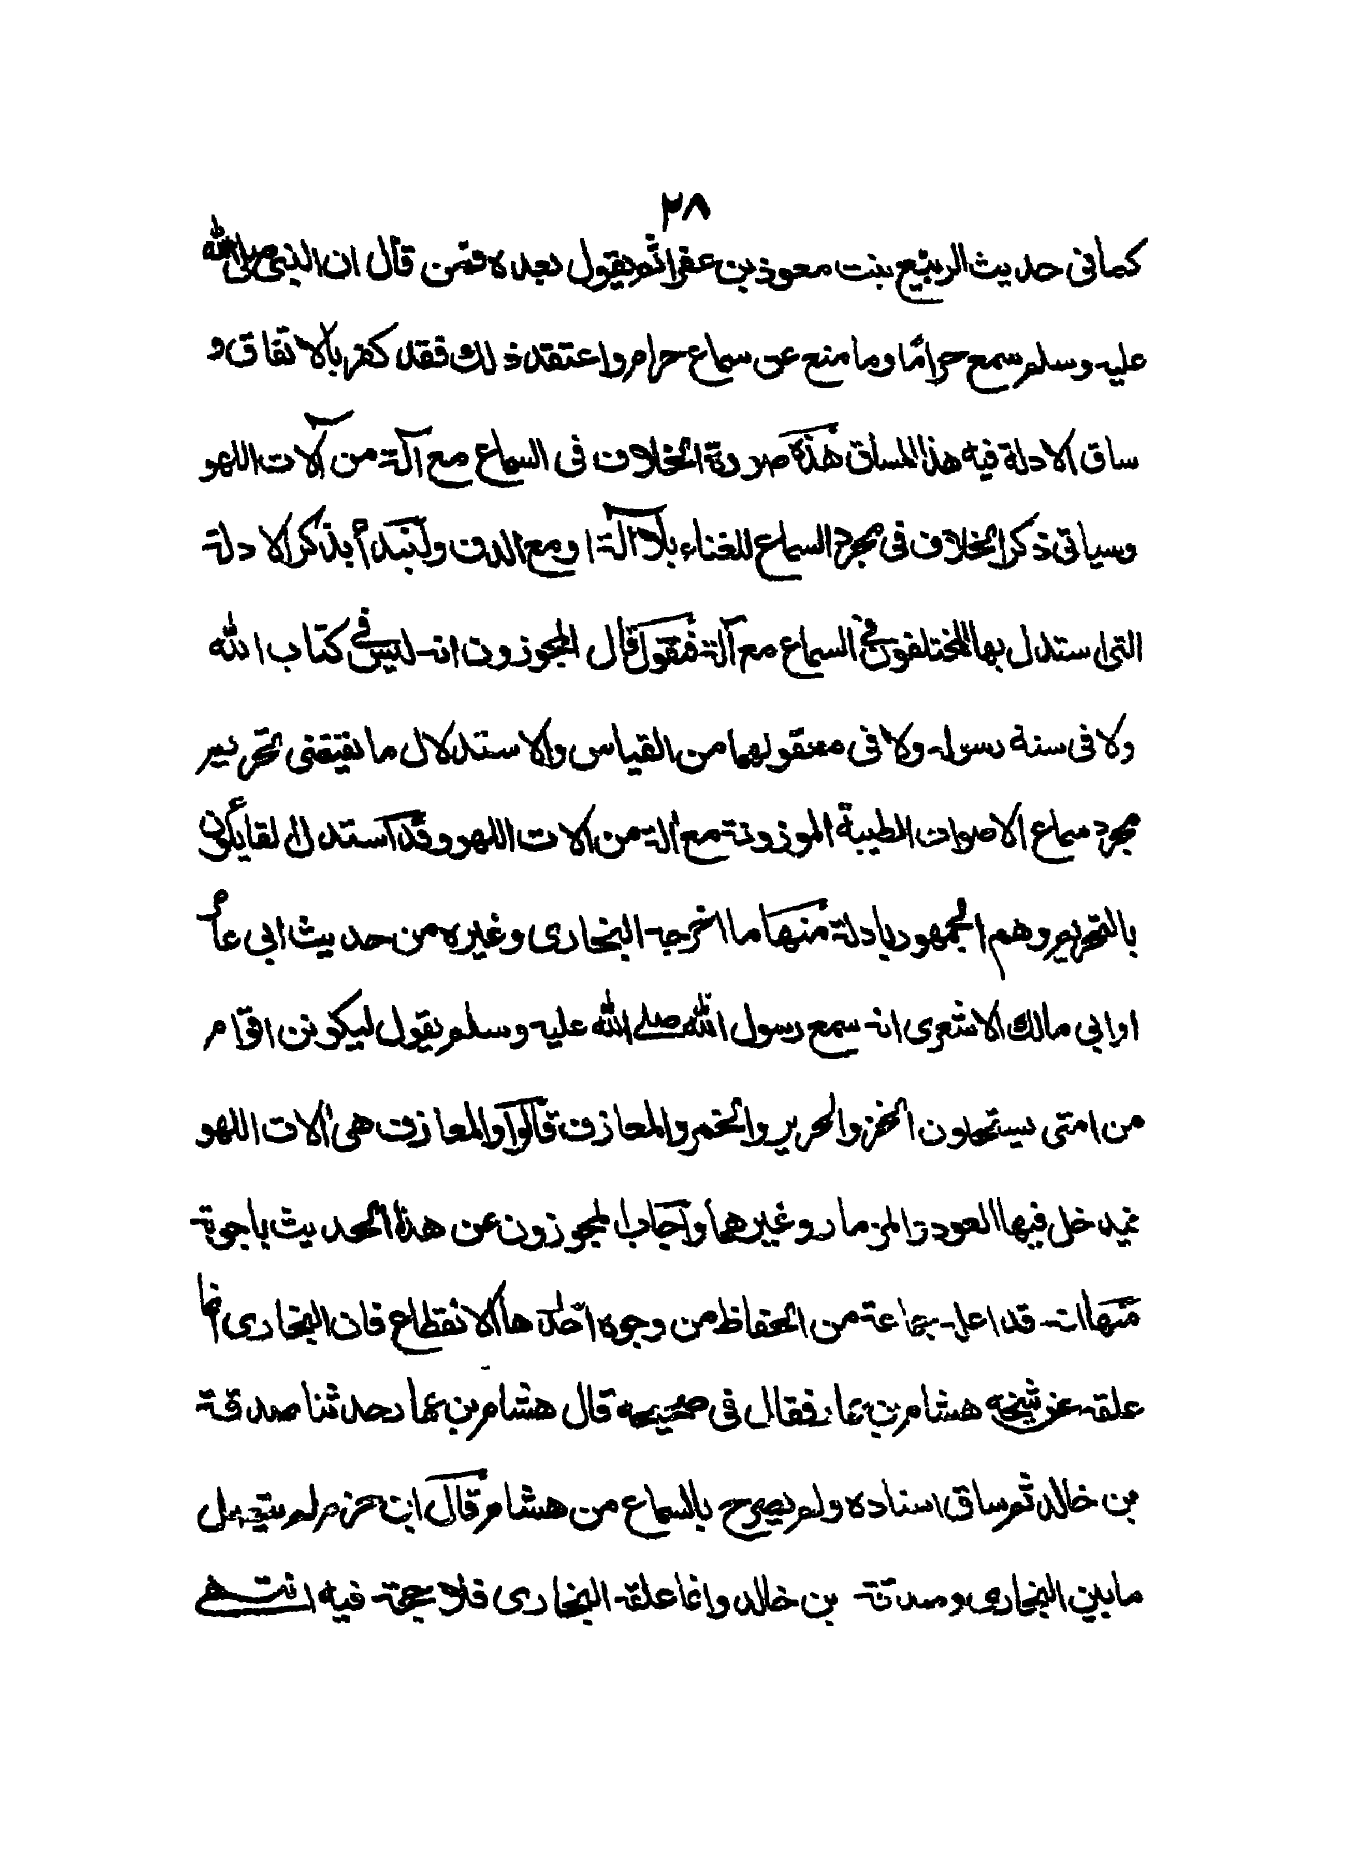 ٢٨
كما في حديث الربيع بنت معوذ بن عفراء ثم يقول بعده فمن قال ان النبي صلى الله
عليه وسلم سمع حرامًا وما منع عن سماع حرام واعتقد ذلك فقد كفر بالاتفاق و
ساق الادلة فيه هذا المساق هذه صورة الخلاف في السماع مع آلة من آلات اللهو
وسياتي ذكر الخلاف في مجرد السماع للغناء بلا آلة او مع الدف ولنبدأ بذكر الادلة
التي استدل بها المختلفون في السماع مع آلة فنقول قال المجوزون انه ليس في كتاب الله
ولا في سنة رسوله ولا في معقولهما من القياس والاستدلال ما يقتضي تحريم
مجرد سماع الاصوات الطيبة الموزونة مع آلة من الات اللهو وقد استدل القايلون
بالتحريم وهم الجمهور بادلة منها ما اخرجه البخارى وغيره من حديث ابي عامر
او ابي مالك الاشعرى انه سمع رسول الله صلى الله عليه وسلم يقول ليكونن اقوام
من امتي يستحلون الخز والحرير والخمر والمعازف قالوا والمعازف هي آلات اللهو
فيدخل فيها العود والمزمار وغيرهما وأجاب المجوزون عن هذا الحديث باجوبة
منها انه قد اعله جماعة من الحفاظ من وجوه احدها الانقطاع فان البخارى انما
علقه عن شيخه هشام بن عمار فقال في صحيحه قال هشام بن عمار حدثنا صدقة
بن خالد ثم ساق اسناده ولم يصرح بالسماع من هشام قال ابن حزم لم يتصل
ما بين البخارى وصدقة بن خالد وانما علقه البخارى فلا حجة فيه انتهى